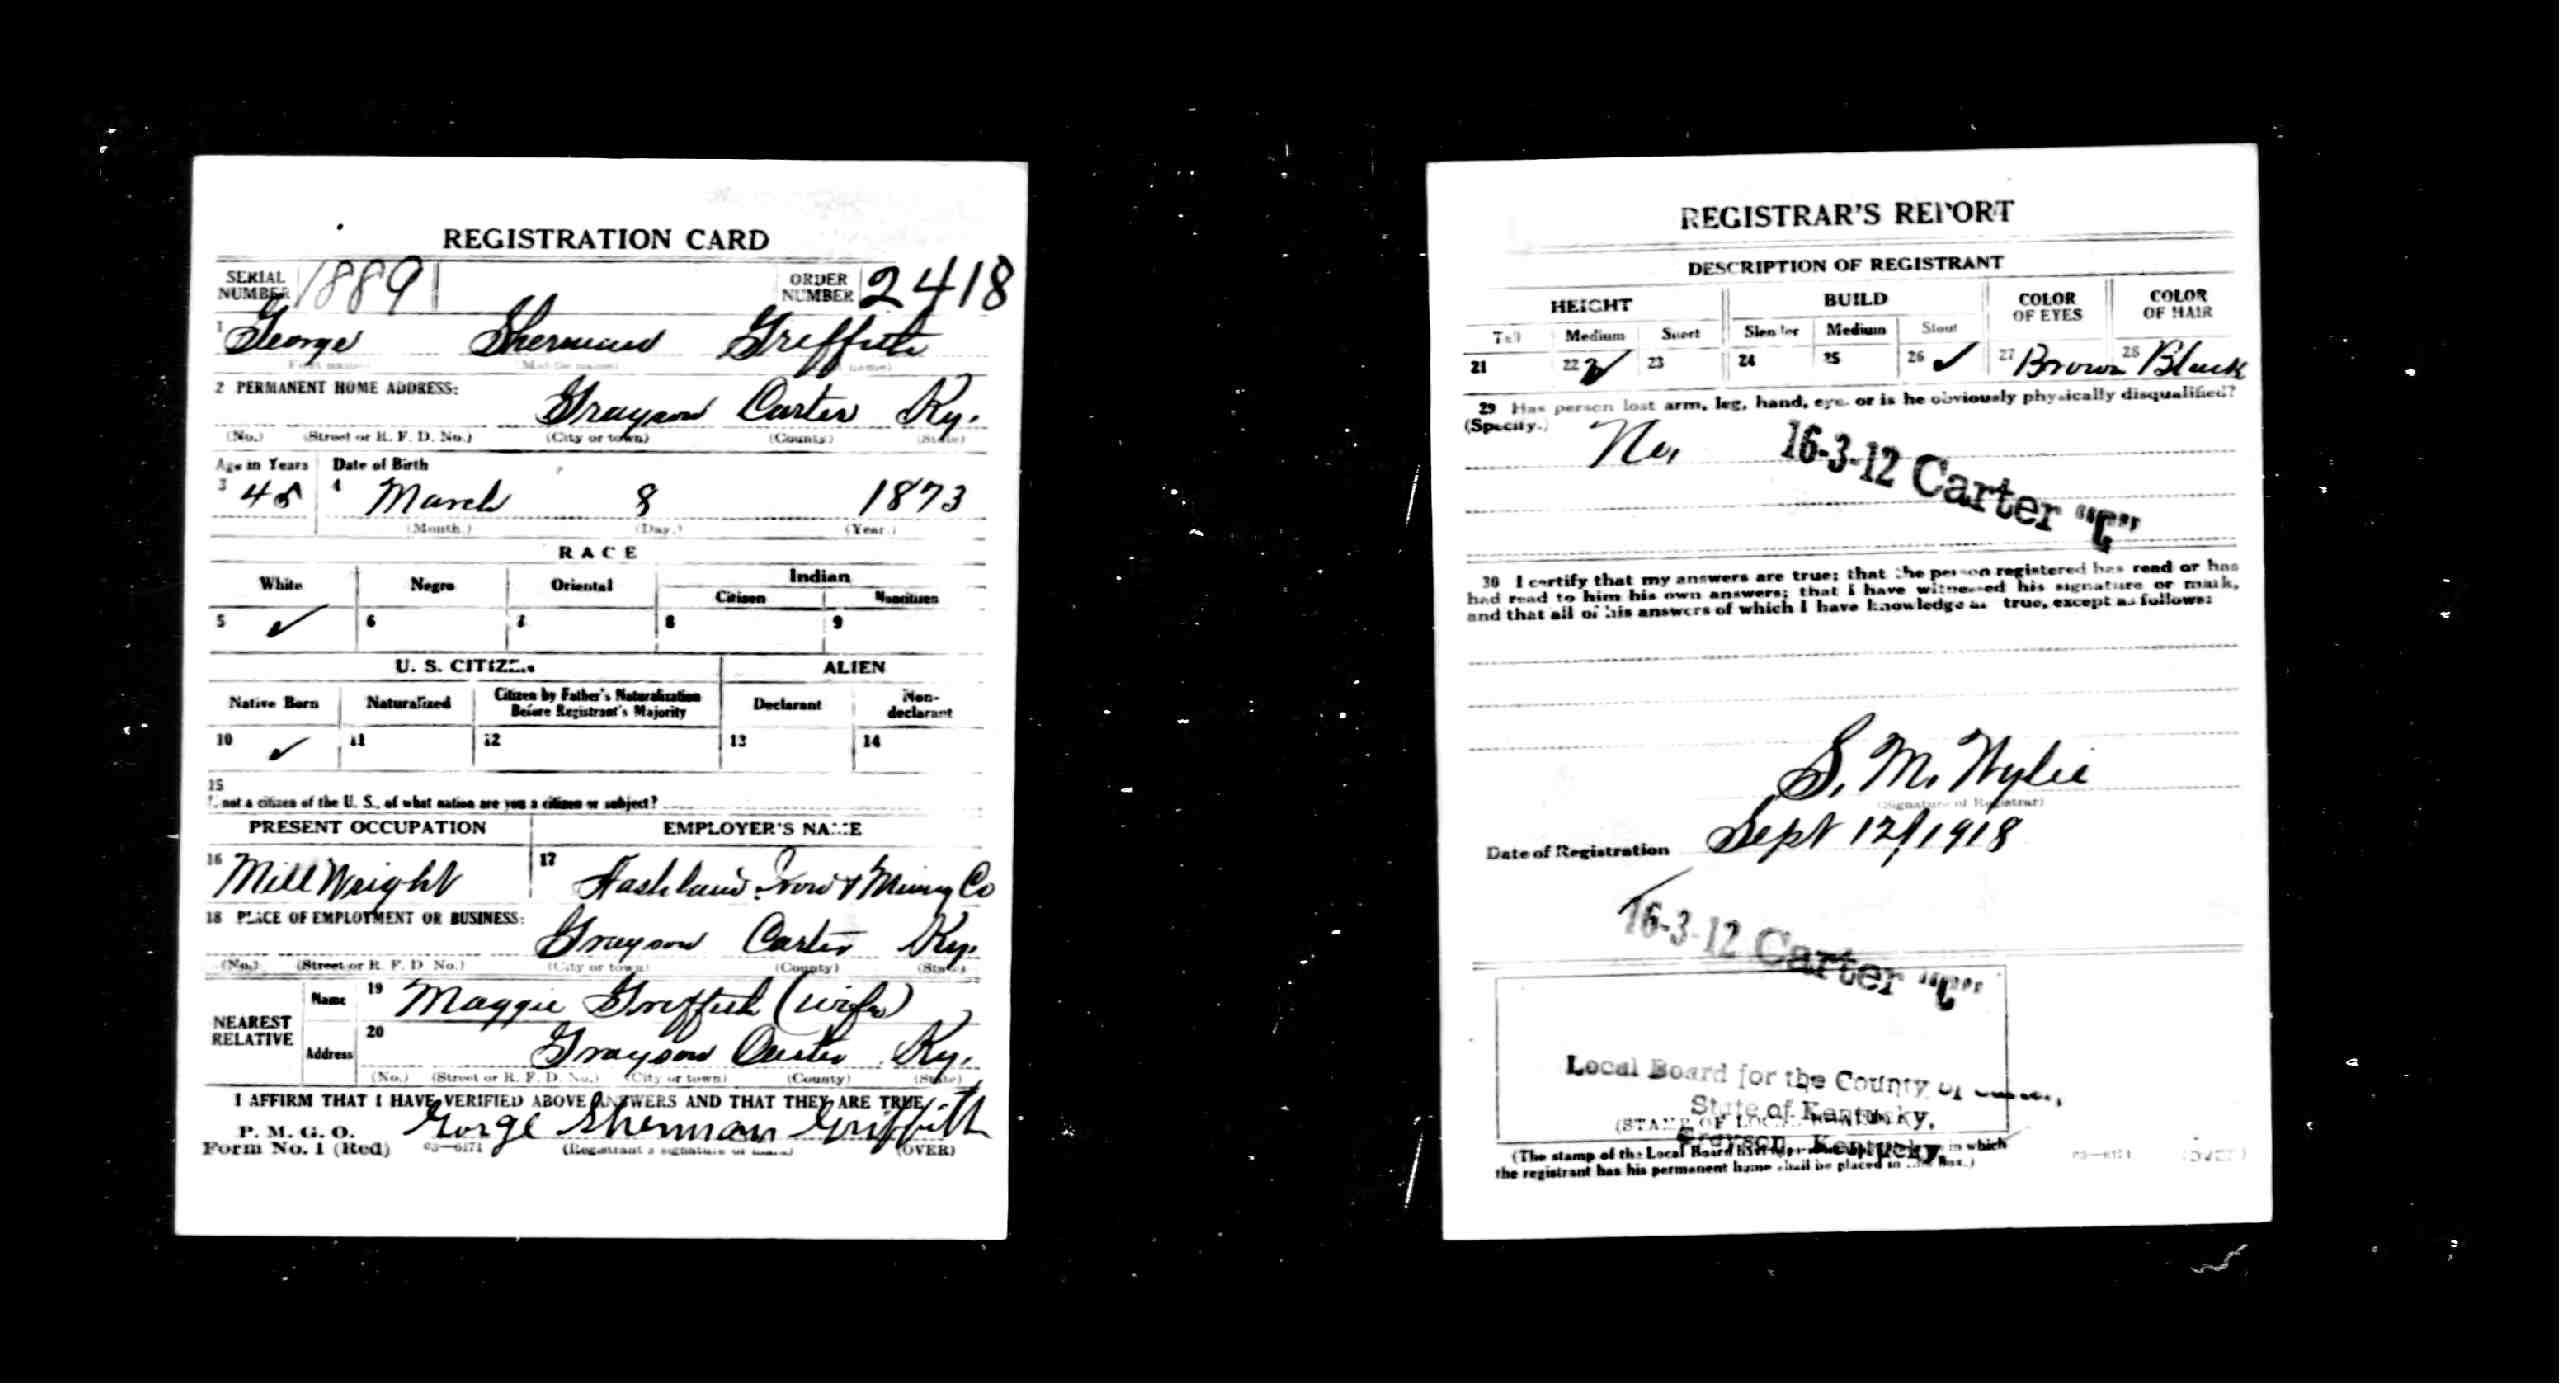 REGISTRATION CARD
SERIAL NUMBER 1889 ORDER NUMBER 2418
1 George Sherman Griffith
2 PERMANENT HOME ADDRESS:
Grayson Carter Ky.
(No.) (Street or R. F. D. No.) (City or town) (County) (State)
Age in Years Date of Birth
3 45 4 March 8 1873
(Month.) (Day.) (Year.)
RACE
White Negro Oriental Indian
Citizen Noncitizen
5 ✓ 6 7 8 9
U. S. CITIZEN ALIEN
Native Born Naturalized Citizen by Father's Naturalization Before Registrant's Majority Declarant Non-declarant
10 ✓ 11 12 13 14
15
If not a citizen of the U. S., of what nation are you a citizen or subject?
PRESENT OCCUPATION EMPLOYER'S NAME
16 Mill Wright 17 Iron & Mining Co
18 PLACE OF EMPLOYMENT OR BUSINESS:
Grayson Carter Ky.
(No.) (Street or R. F. D. No.) (City or town) (County) (State)
NEAREST RELATIVE
Name 19 Maggie Griffith (wife)
Address 20 Grayson Carter Ky.
(No.) (Street or R. F. D. No.) (City or town) (County) (State)
I AFFIRM THAT I HAVE VERIFIED ABOVE ANSWERS AND THAT THEY ARE TRUE
P. M. G. O.
Form No. 1 (Red) 03—6171 Gorge Sherman Griffith
(Registrant's signature or mark) (OVER)
REGISTRAR'S REPORT
DESCRIPTION OF REGISTRANT
HEIGHT BUILD COLOR OF EYES COLOR OF HAIR
Tall Medium Short Slender Medium Stout
21 22 ✓ 23 24 25 26 ✓ 27 Brown 28 Black
29 Has person lost arm, leg, hand, eye, or is he obviously physically disqualified?
(Specify.) No,
16-3-12 Carter "C"
30 I certify that my answers are true; that the person registered has read or has
had read to him his own answers; that I have witnessed his signature or mark,
and that all of his answers of which I have knowledge are true, except as follows:
S. M. Wylie
(Signature of Registrar)
Date of Registration Sept 12/1918
16-3-12 Carter "C"
Local Board for the County of
State of Kentucky,
(STAMP OF LOCAL
Grayson, Kentucky
(The stamp of the Local Board in which
the registrant has his permanent home shall be placed in this box.)
03—6171 (OVER)